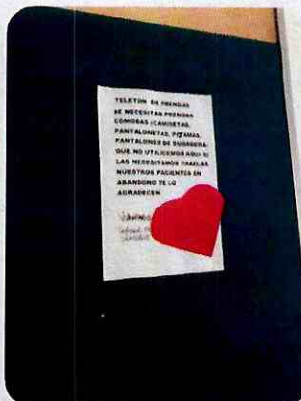 TELETON DE PRENDAS
SE NECESITAN PRENDAS
COMODAS (CAMISETAS,
PANTALONETAS, PIJAMAS,
PANTALONES DE SUDADERA,
QUE NO UTILICEMOS AQUI SI
LAS NECESITAMOS TRAELAS
NUESTROS PACIENTES EN
ABANDONO TE LO
AGRADECEN